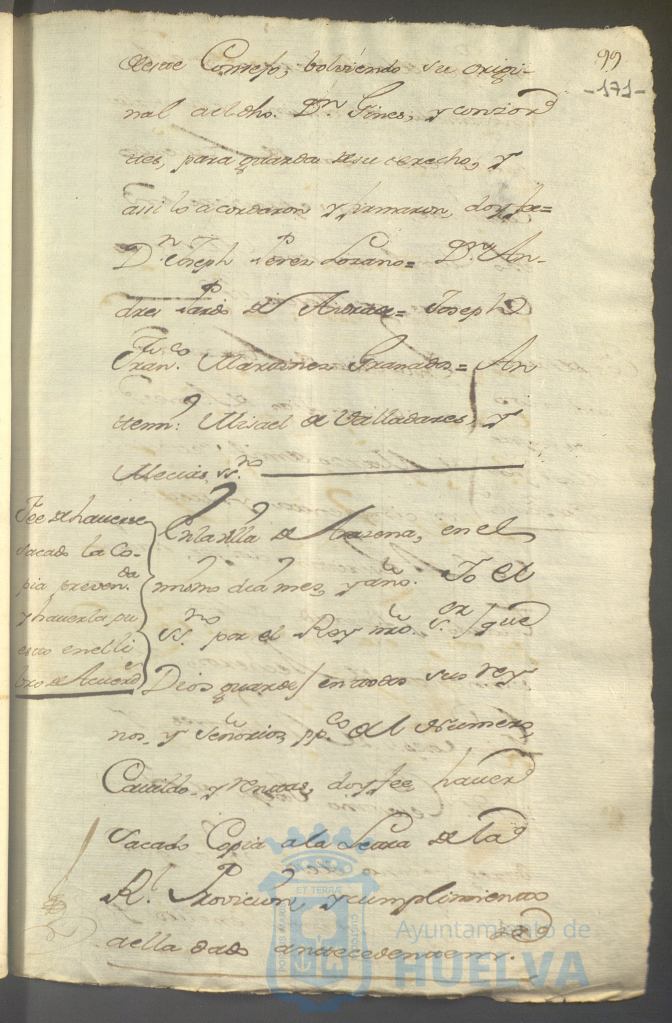 99
-171-
deste Consejo, bolviendo su origi-
nal a el dho. Dn. Gines, y consor
tes, para guarda de su derecho, y
assi lo acordaron y firmaron, doy fee=
Dn. Joseph Perez Lozano= Dn. An-
dres Pardo de = Joseph
Franco. Martinez Granados= An
temi: Misael de Valladares, y
Mecias, ssno.
Fee de haverse
sacado la Co-
pia prevenda.
y haverla pu
esto en el li
bro de Acuerdo
En la villa de Arazena, en el
mismo dia, mes, y año. Yo el
ssno. por el Rey nro. sor. (que
Dios guarde) en todos sus rey
nos, y señorios, ppco. del Numero,
Cavildo, y rentas, doy fee, haver
sacado Copia a la Letra de la
Rl. Provicion, y cumplimiento
a ella dado antecedentemte.
Ayuntamiento de
HUELVA